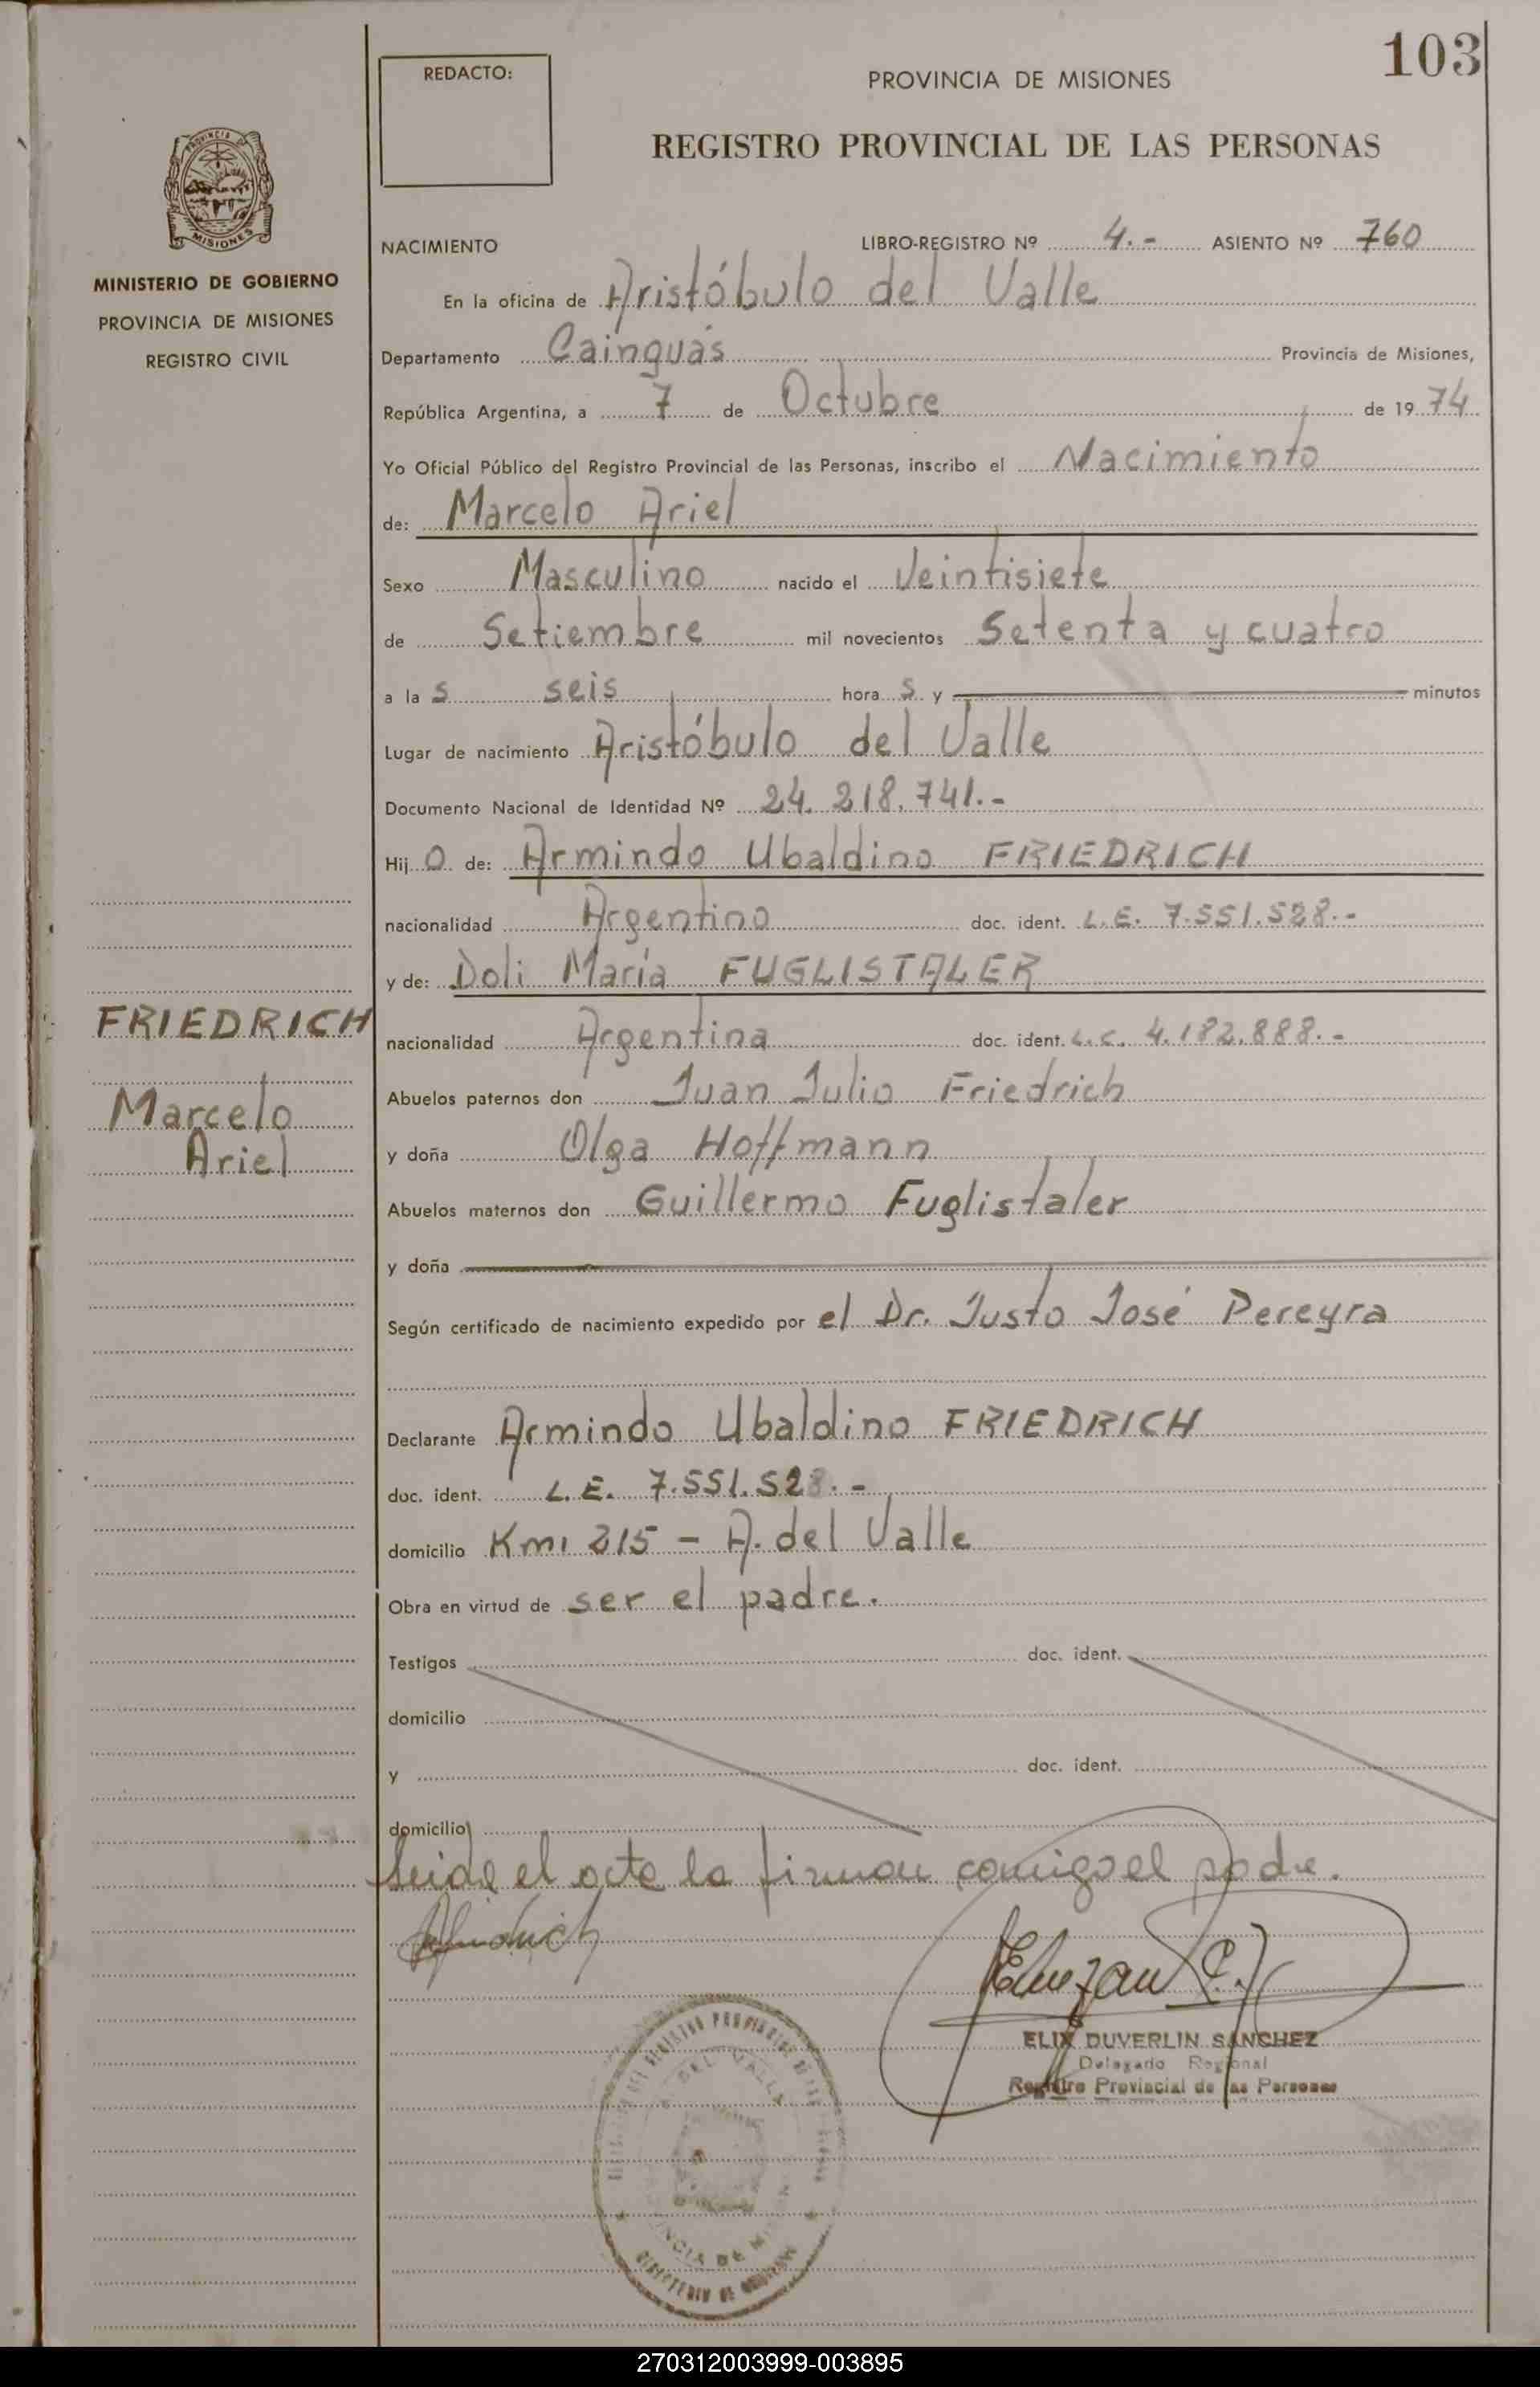 103
REDACTO:
PROVINCIA DE MISIONES
REGISTRO PROVINCIAL DE LAS PERSONAS
PROVINCIA DE
MISIONES
MINISTERIO DE GOBIERNO
PROVINCIA DE MISIONES
REGISTRO CIVIL
NACIMIENTO LIBRO-REGISTRO Nº 4.- ASIENTO Nº 760
En la oficina de Aristóbulo del Valle
Departamento Cainguás Provincia de Misiones,
República Argentina, a 7 de Octubre de 1974
Yo Oficial Público del Registro Provincial de las Personas, inscribo el Nacimiento
de: Marcelo Ariel
Sexo Masculino nacido el Veintisiete
de Setiembre mil novecientos Setenta y cuatro
a las seis horas y minutos
Lugar de nacimiento Aristóbulo del Valle
Documento Nacional de Identidad Nº 24.218.741.-
Hijo de: Armindo Ubaldino FRIEDRICH
nacionalidad Argentino doc. ident. L.E. 7.551.528.-
y de: Doli María FUGLISTALER
nacionalidad Argentina doc. ident. L.C. 4.182.888.-
FRIEDRICH
Marcelo
Ariel
Abuelos paternos don Juan Julio Friedrich
y doña Olga Hoffmann
Abuelos maternos don Guillermo Fuglistaler
y doña
Según certificado de nacimiento expedido por el Dr. Justo José Pereyra
Declarante Armindo Ubaldino FRIEDRICH
doc. ident. L.E. 7.551.528.-
domicilio Km. 215 - A. del Valle
Obra en virtud de ser el padre.
Testigos doc. ident.
domicilio
y doc. ident.
domicilio
Leida el acta la firman conmigo el padre.
ELIX DUVERLIN SANCHEZ
Delegado Regional
Registro Provincial de las Personas
270312003999-003895